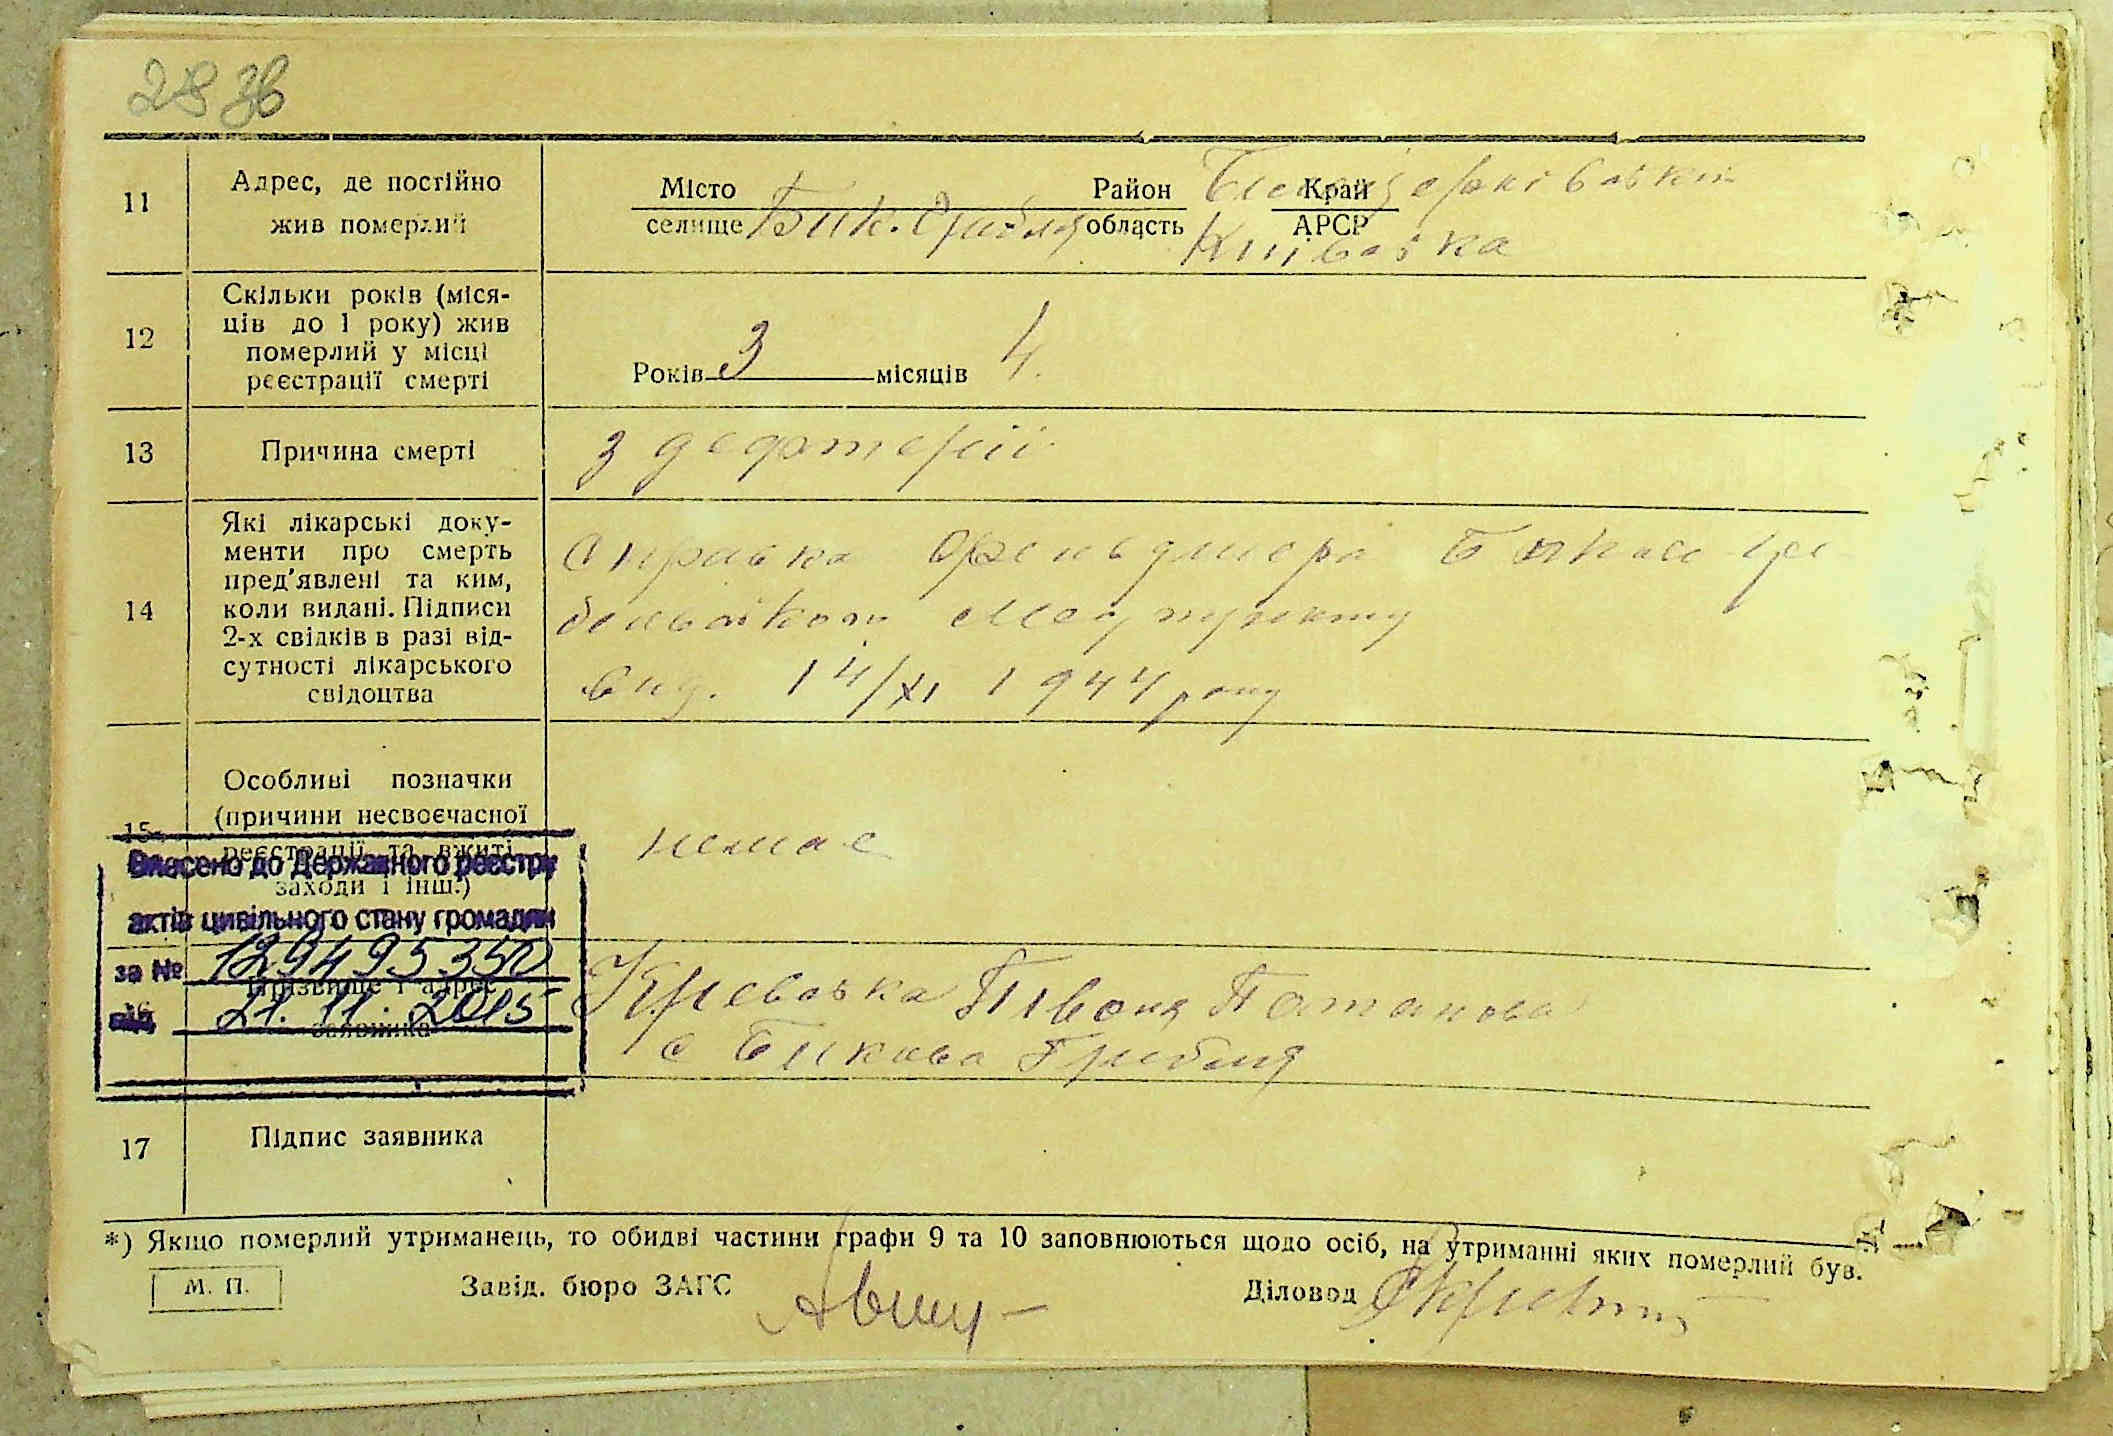 28 зв
11 Адрес, де постійно жив померлий
Місто селище Бик. Гребля Район Білоцерківський область Київська Край АРСР
12 Скільки років (міся-
ців до 1 року) жив
померлий у місці
реєстрації смерті
Років 3 місяців 4.
13 Причина смерті
з дефтерії
14 Які лікарські доку-
менти про смерть
пред'явлені та ким,
коли видані. Підписи
2-х свідків в разі від-
сутності лікарського
свідоцтва
Справка Фельдшера
Медпункту
вид. 14/XI 1944 року
15 Особливі позначки
(причини несвоєчасної
реєстрації та вжиті
заходи і інш.)
немає
Внесено до Державного реєстру
актів цивільного стану громадян
за № 129495350
від 21. 11. 2015
16 Прізвище і адрес
заявника
с Бикова Гребля
17 Підпис заявника
*) Якщо померлий утриманець, то обидві частини графи 9 та 10 заповнюються щодо осіб, на утриманні яких померлий був.
М. П. Завід. бюро ЗАГС Діловод